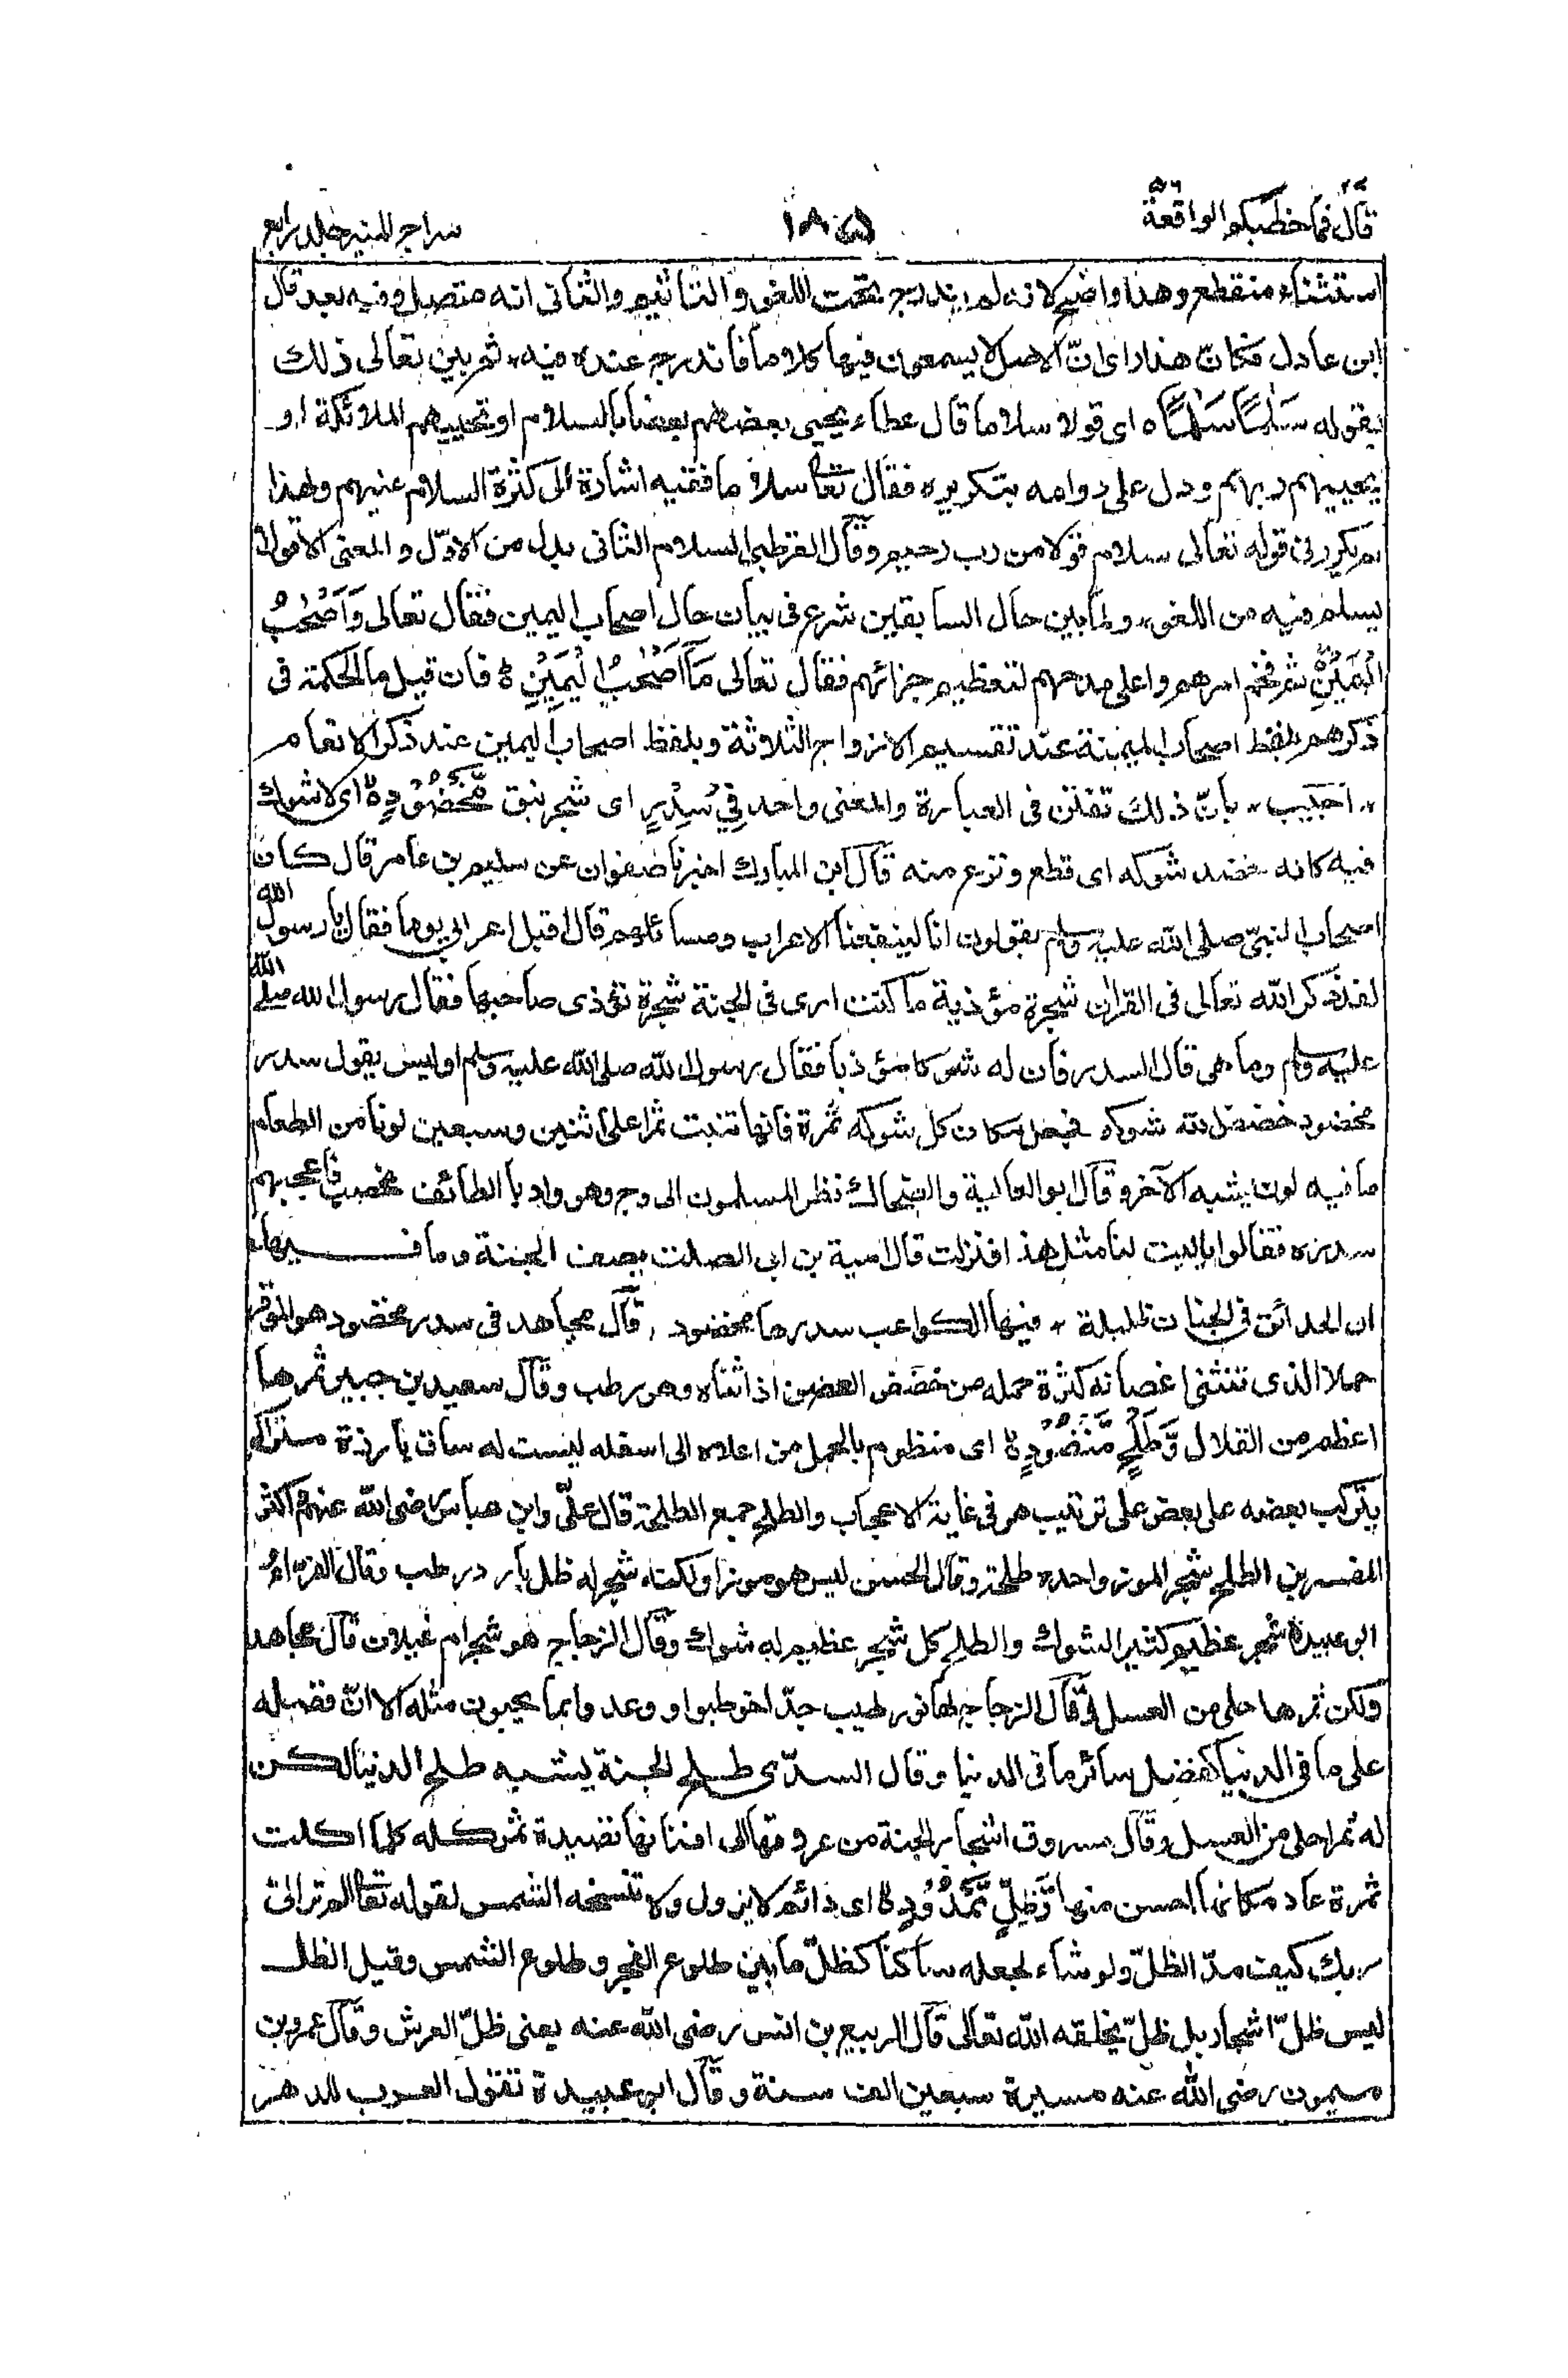 قال فما خطبكم الواقعة ٥٦
١٨٥
سراج المنير جلد رابع
استثناء منقطع وهذا واضح لانه لم يندرج تحت اللغو والتأثيم والثانى انه متصل وفيه بعد قال
ابن عادل فكانّ هذا راى انّ الاصل لا يسمعون فيها كلاما فاندرج عنده فيه، ثم بين تعالى ذلك
بقوله سَلٰمًا سَلٰمًا ه اى قولا سلاما قال عطاء يحيى بعضهم بعضا بالسلام او تحييهم الملائكة او
يحييهم ربهم ودل على دوامه بتكريره فقال تعا سلاما ففيه اشارة الى كثرة السلام عليهم ولهذا
لم يكرر فى قوله تعالى سلام قولا من رب رحيم وقال القرطبى السلام الثانى بدل من الاوّل والمعنى الا قولا
يسلم فيه من اللغو، ولما بين حال السابقين شرع فى بيان حال اصحاب اليمين فقال تعالى وَاَصْحٰبُ
الْيَمِيْنِ ثم فخم امرهم واعلى مدحهم لتعظيم جزائهم فقال تعالى مَآ اَصْحٰبُ الْيَمِيْنِ ه فان قيل ما الحكمة فى
ذكرهم بلفظ اصحاب الميمنة عند تقسيم الازواج الثلاثة وبلفظ اصحاب اليمين عند ذكر الانعام
، اجيب، بانّ ذلك تفنن فى العبارة والمعنى واحد فِيْ سِدْرٍ اى شجر نبق مَّخْضُوْدٍ ه اى لا شوك
فيه كانه خضد شوكه اى قطع ونزع منه قال ابن المبارك اخبرنا صفوان عن سليم بن عامر قال كان
اصحاب النبىّ صلى الله عليه وسلم يقولون انا لينفعنا الاعراب ومسائلهم قال اقبل اعرابى يوما فقال يا رسول الله
لقد ذكر الله تعالى فى القران شجرة مؤذية ما كنت ارى فى الجنة شجرة تؤذى صاحبها فقال رسول الله صلى الله
عليه وسلم وما هى قال السدر فان له شوكا مؤذيا فقال رسول الله صلى الله عليه وسلم اوليس يقول سدر
مخضود خضد الله شوكه فجعل مكان كل شوكه ثمرة فانها تنبت ثمرا على اثنين وسبعين لونا من الطعام
ما فيه لون يشبه الآخر وقال ابو العالية والضحاك نظر المسلمون الى وج وهو واد بالطائف مخصب فاعجبهم
سدره فقالوا ياليت لنا مثل هذا فنزلت قال امية بن ابى الصلت يصف الجنة وما فيها،
ان الحدائق فى الجنات ظليلة ، فيها الكواعب سدرها مخضود ، قال مجاهد فى سدر مخضود هو الموقر
حملا الذى تنثنى اغصانه كثرة حمله من خضد الغصن اذا ثناه وهو رطب وقال سعيد بن جبير ثمرها
اعظم من القلال وَّطَلْحٍ مَّنْضُوْدٍ ه اى منظوم بالحمل من اعلاه الى اسفله ليست له ساق بارزة متراكم
يتركب بعضه على بعض على ترتيب هو فى غاية الاعجاب والطلح جمع الطلحة قال علىّ وابن عباس رضى الله عنهم واكثر
المفسرين الطلح شجر الموز واحده طلحة وقال الحسن ليس هو موزا ولكنه شجر له ظل بارد رطب وقال الفراء و
ابو عبيدة شجر عظيم كثير الشوك والطلح كل شجر عظيم له شوك وقال الزجاج هو شجر ام غيلان قال مجاهد
ولكن ثمرها احلى من العسل وقال الزجاج لها نور طيب جدّا خوطبوا ووعدوا بما يحبون مثله الا انّ فضله
على ما فى الدنيا كفضل سائر ما فى الدنيا وقال السدّى طلح الجنة يشبه طلح الدنيا لكن
له ثمر احلى من العسل وقال مسروق اشجار الجنة من عروقها الى افنانها نضيدة ثمر كله كلما اكلت
ثمرة عاد مكانها احسن منها وَّظِلٍّ مَّمْدُوْدٍ ه اى دائم لا يزول ولا تنسخه الشمس لقوله تعا الم تر الى
ربك كيف مدّ الظلّ ولو شاء لجعله ساكنا كظلّ ما بين طلوع الفجر وطلوع الشمس وقيل الظل
ليس ظلّ اشجار بل ظلّ يخلقه الله تعالى قال الربيع بن انس رضى الله عنه يعنى ظلّ العرش وقال عمرو بن
ميمون رضى الله عنه مسيرة سبعين الف سنة وقال ابو عبيدة تقول العرب للدهر